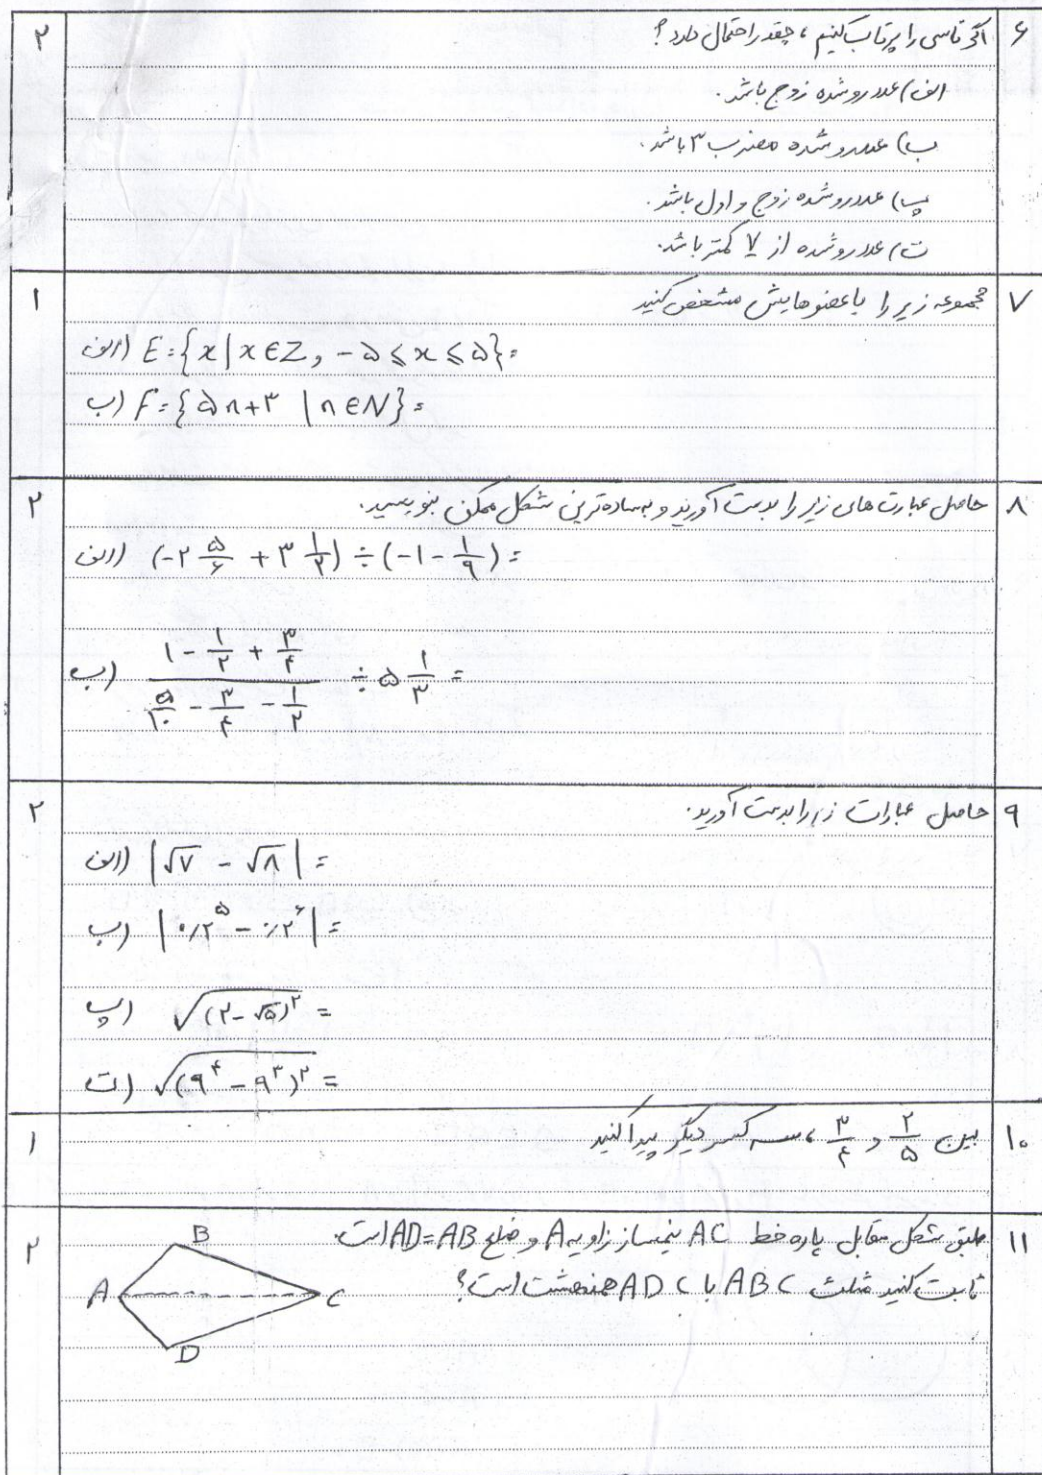 ۶ اگر تاسی را پرتاب کنیم ، چقدر احتمال دارد ؟ ۲
الف) عدد رو شده زوج باشد.
ب) عدد رو شده مضرب ۳ باشد.
پ) عدد رو شده زوج و اول باشد.
ت) عدد رو شده از ۷ کمتر باشد.
۷ مجموعه زیر را با عضوهایش مشخص کنید ۱
الف) E = {x | x ∈ Z , -۵ ≤ x ≤ ۵} =
ب) F = {۵n+۳ | n ∈ N} =
۸ حاصل عبارت های زیر را بدست آورید و به ساده ترین شکل ممکن بنویسید. ۲
الف) (-۲ ۵/۶ + ۳ ۱/۲) ÷ (-۱ - ۱/۹) =
ب) (۱ - ۱/۲ + ۳/۴)/(۵/۱۰ - ۳/۴ - ۱/۲) ÷ ۵ ۱/۳ =
۹ حاصل عبارات زیر را بدست آورید. ۲
الف) |√۷ - √۸| =
ب) |۰/۲^۵ - ۰/۲^۶| =
پ) √(۲-√۵)^۲ =
ت) √(۹^۴ - ۹^۳)^۲ =
۱۰ بین ۲/۵ و ۳/۴ ، سه کسر دیگر پیدا کنید ۱
۱۱ طبق شکل مقابل پاره خط AC نیمساز زاویه A و ضلع AD=AB است. ۲
ثابت کنید مثلث ABC با ADC همنهشت است؟
B
A C
D